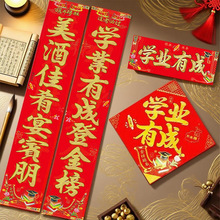 学业有成登金榜
美酒佳肴宴宾朋
学业有成
学业
有成